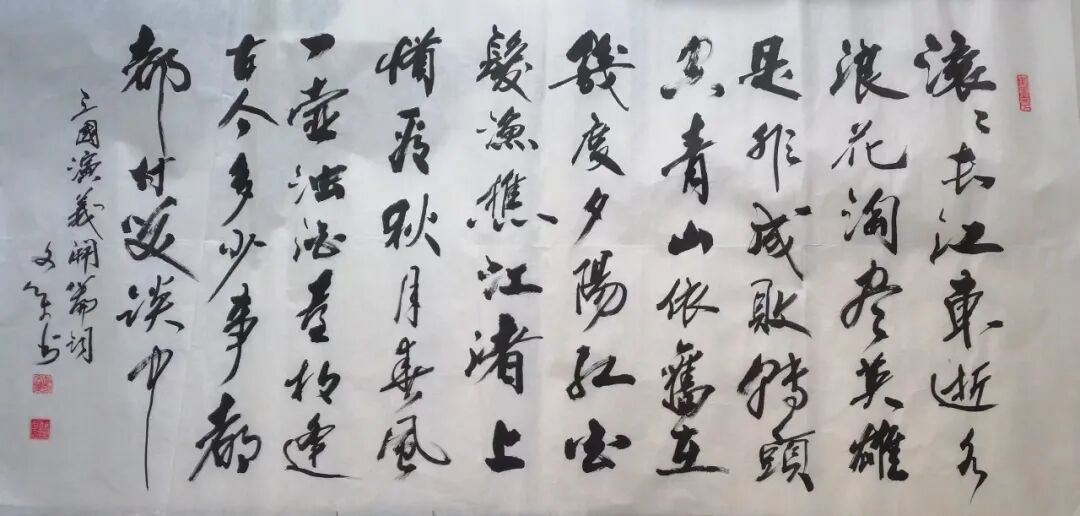 滚〻長江東逝水
浪花淘盡英雄
是非成敗轉頭
空青山依舊在
幾度夕陽紅白
髮漁樵江渚上
慣看秋月春風
一壺濁酒喜相逢
古今多少事都
都付笑談中
三國演義開篇詞
文 书